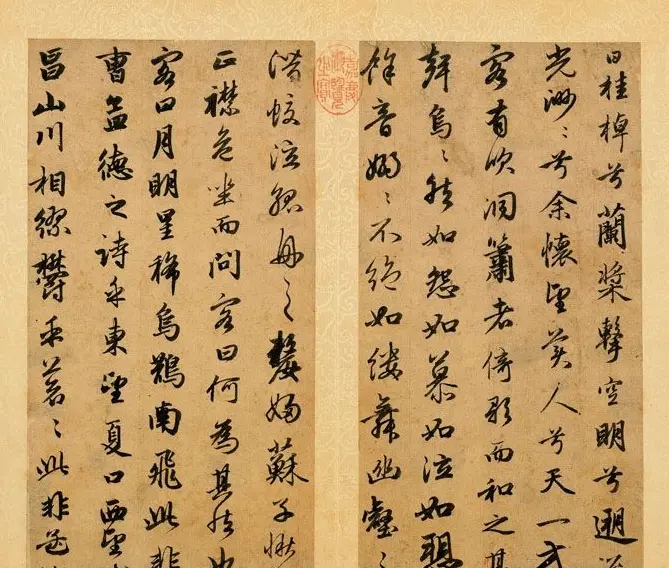 曰桂棹兮蘭槳擊空明兮遡
光渺〻兮余懷望美人兮天一方
客有吹洞簫者倚歌而和之其
聲烏〻然如怨如慕如泣如
餘音嫋〻不絕如縷舞幽壑之
嘉慶御覽之寶
潛蛟泣孤舟之嫠婦蘇子愀
正襟危坐而問客曰何為其然也
客曰月明星稀烏鵲南飛此非
曹孟德之詩乎東望夏口西望
昌山川相繆鬱乎蒼〻此非孟